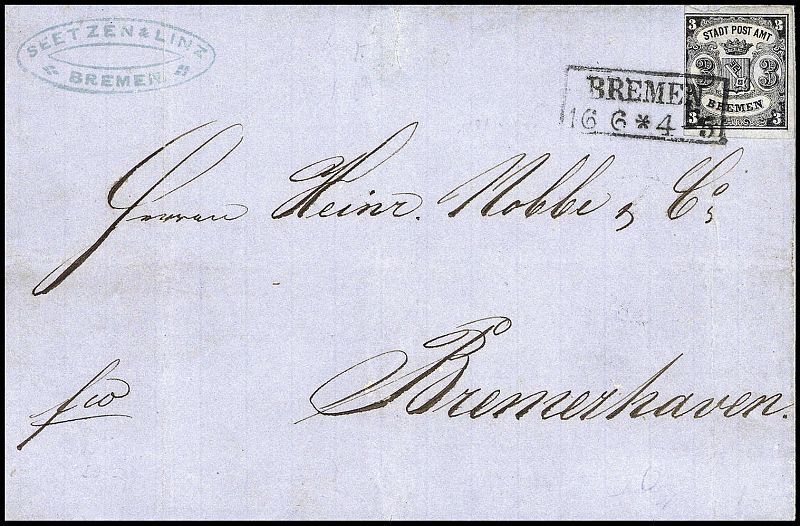 SEETZEN & LINZ
BREMEN
3 3
STADT POST AMT
3 3
BREMEN
3 3
BREMEN
16 6 * 4-5
Herren Heinr. Nobbe & Co,
fco
Bremerhaven.